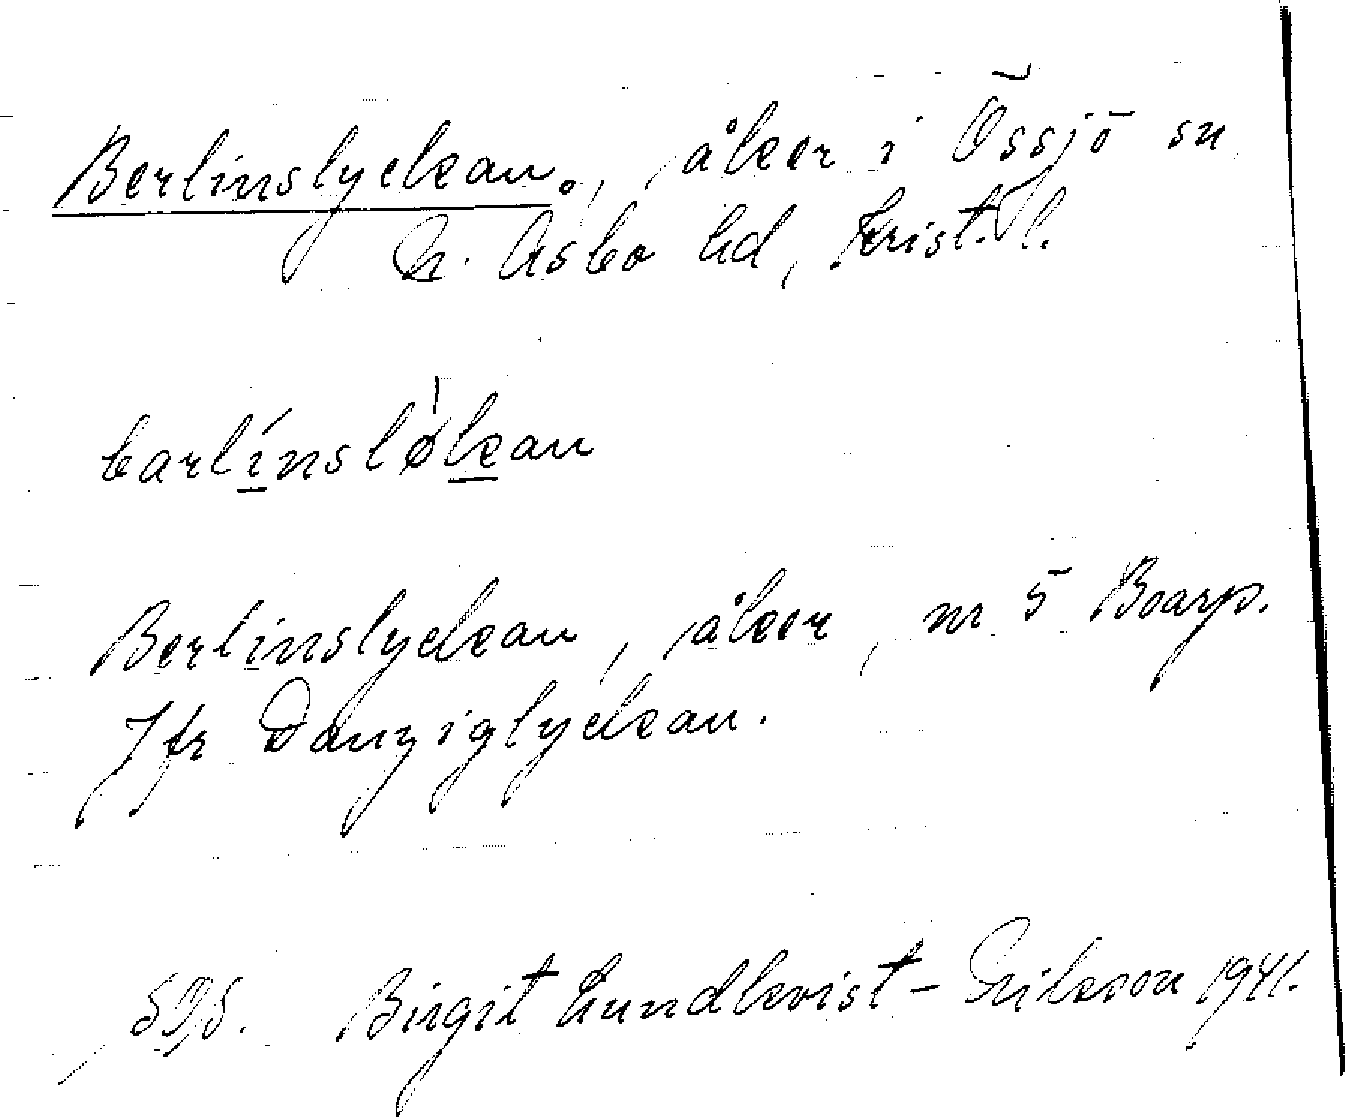 Berlinslyckan., åker i Össjö sn
N. Åsbo hd, Krist. l.
barlínsløkan
Berlinslyckan, åker, nr 5 Boarp.
Jfr Danziglyckan.
Birgit Lundkvist-Eriksson 1941.